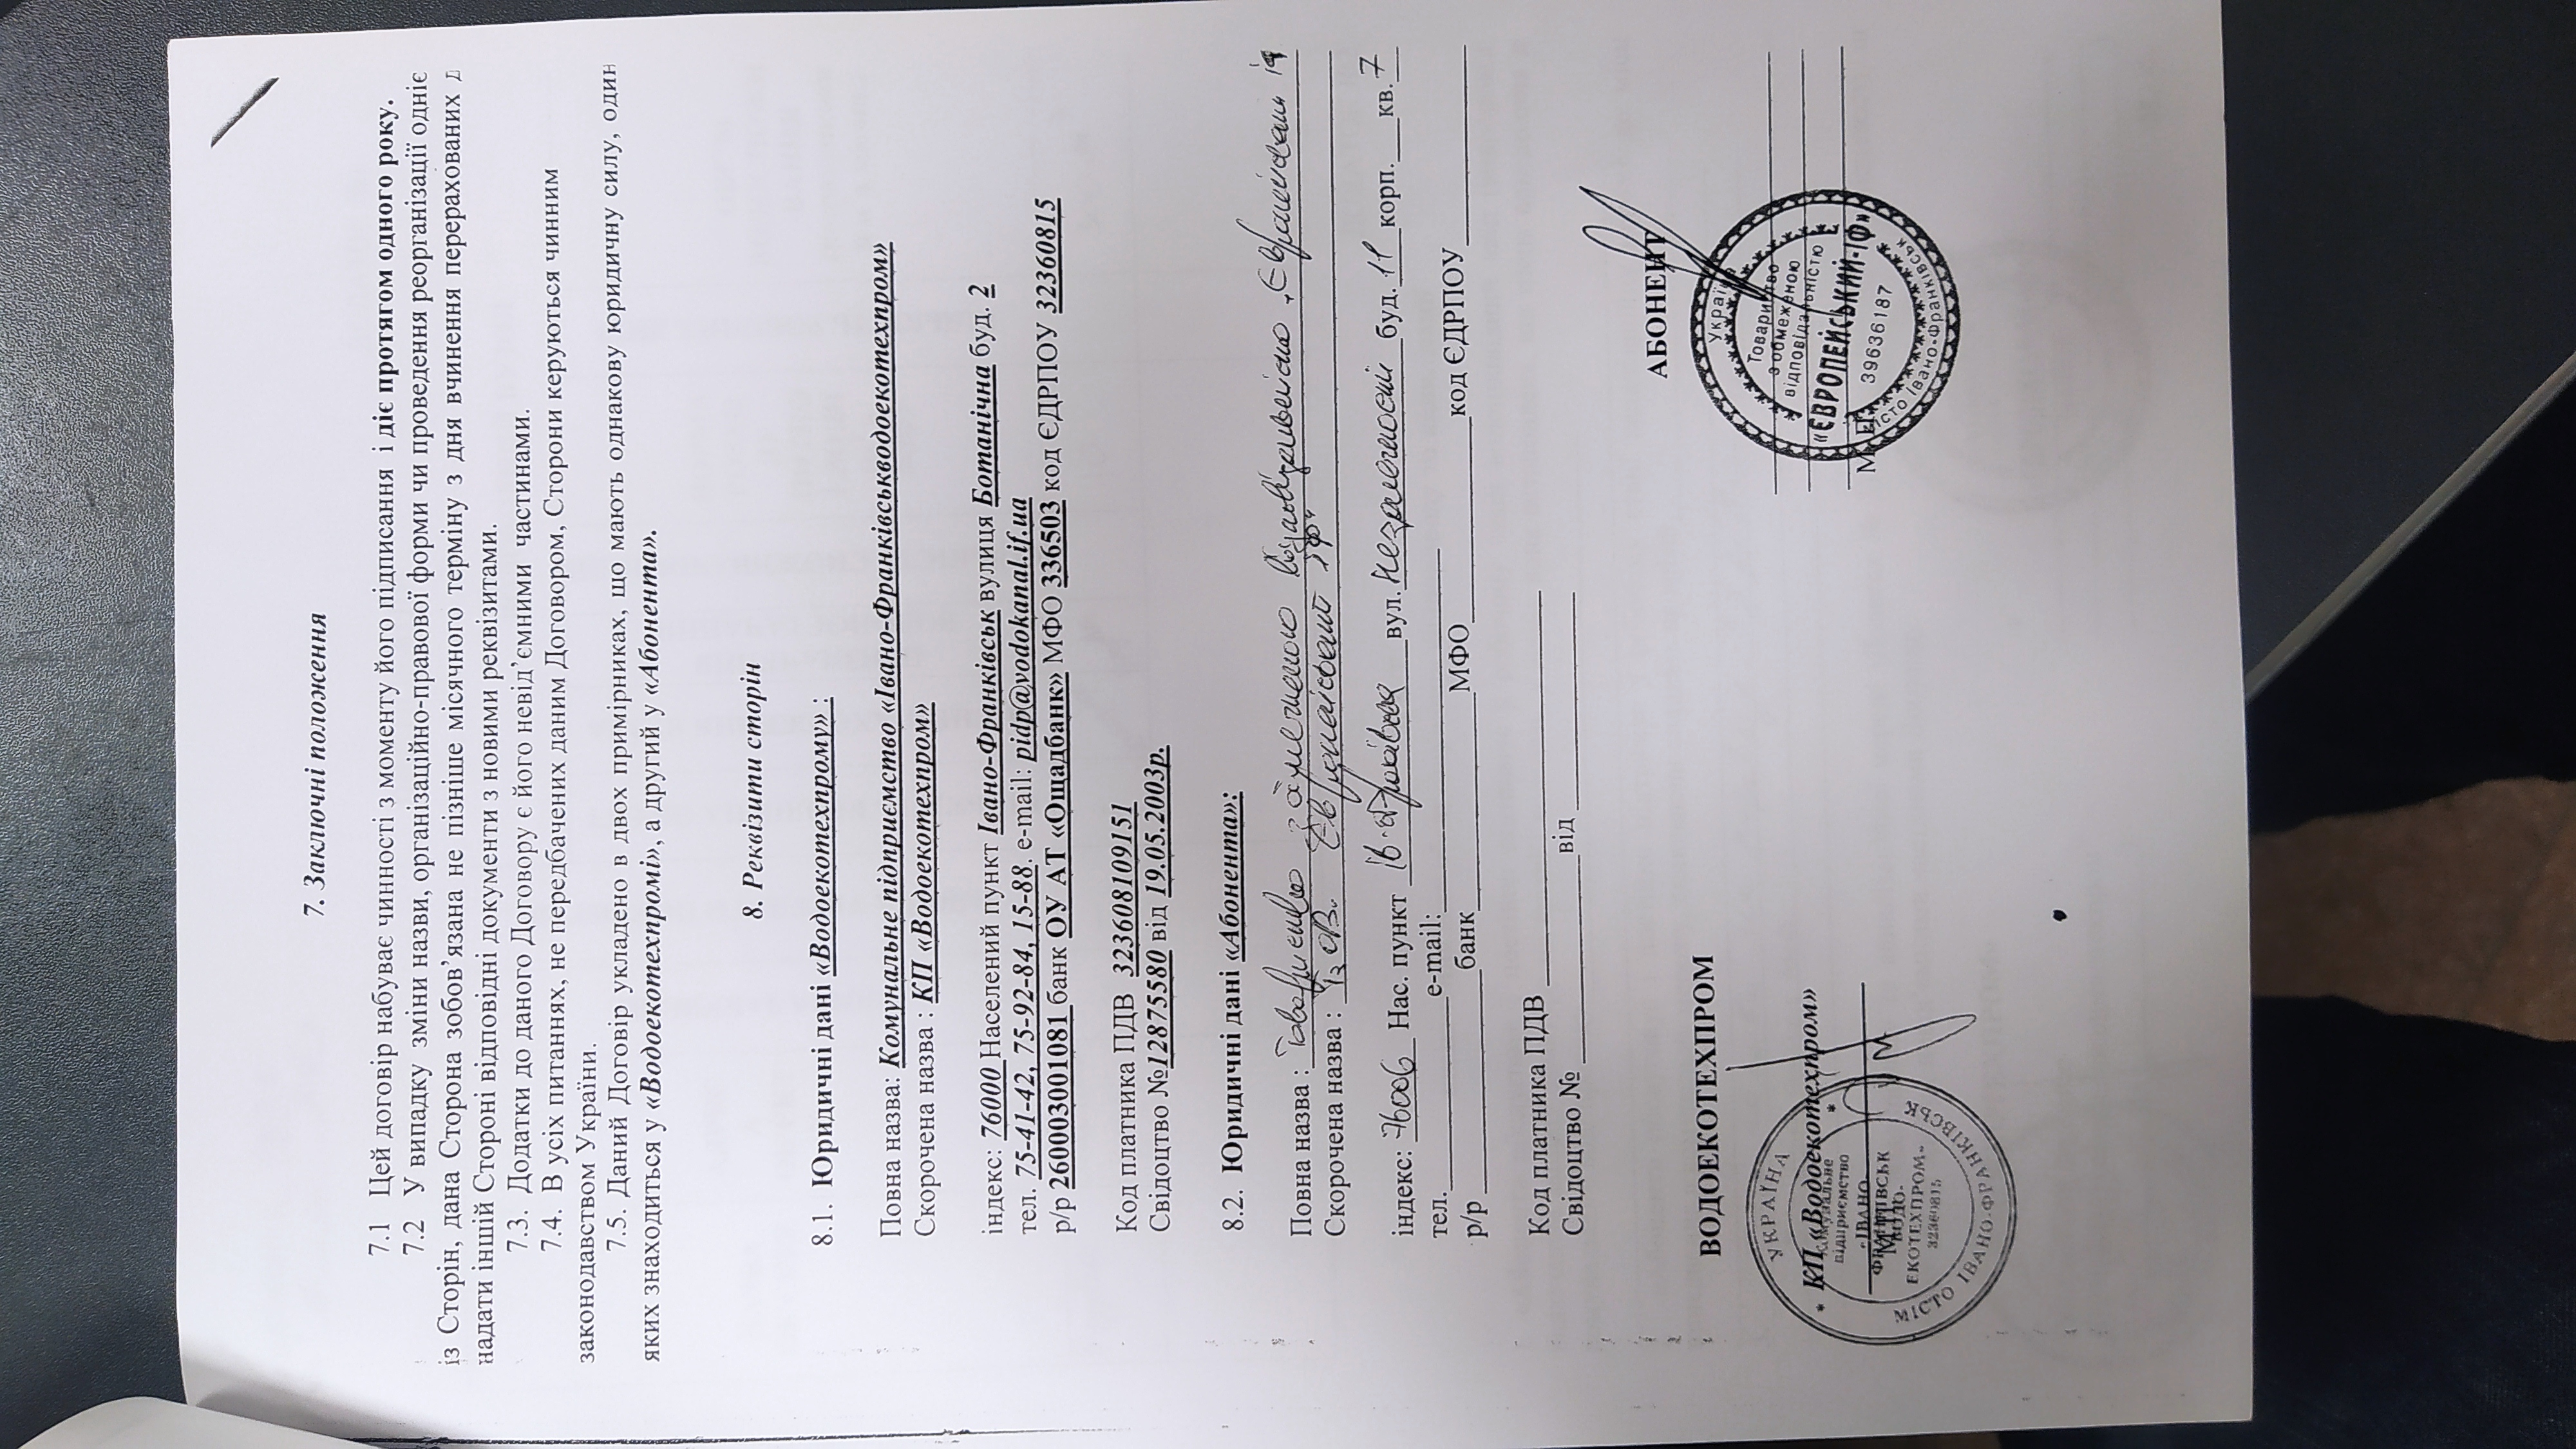 7. Заключні положення
7.1 Цей договір набуває чинності з моменту його підписання і діє протягом одного року.
7.2 У випадку зміни назви, організаційно-правової форми чи проведення реорганізації одніє
із Сторін, дана Сторона зобов’язана не пізніше місячного терміну з дня вчинення перерахованих д
надати іншій Стороні відповідні документи з новими реквізитами.
7.3. Додатки до даного Договору є його невід’ємними частинами.
7.4. В усіх питаннях, не передбачених даним Договором, Сторони керуються чинним
законодавством України.
7.5. Даний Договір укладено в двох примірниках, що мають однакову юридичну силу, один
яких знаходиться у «Водоекотехпромі», а другий у «Абонента».
8. Реквізити сторін
8.1. Юридичні дані «Водоекотехпрому» :
Повна назва: Комунальне підприємство «Івано-Франківськводоекотехпром»
Скорочена назва : КП «Водоекотехпром»
індекс: 76000 Населений пункт Івано-Франківськ вулиця Ботанічна буд. 2
тел. 75-41-42, 75-92-84, 15-88. e-mail: pidp@vodokanal.if.ua
р/р 260003001081 банк ОУ АТ «Ощадбанк» МФО 336503 код ЄДРПОУ 32360815
Код платника ПДВ 323608109151
Свідоцтво №12875580 від 19.05.2003р.
8.2. Юридичні дані «Абонента»:
Повна назва : Товариство з обмеженою відповідальністю „Європейський ІФ
Скорочена назва : ТзОВ. Європейський ІФ“
індекс: 76006 Нас. пункт Ів-Франківськ вул. Незалежності буд. 11 корп. кв. 7
тел. e-mail:
р/р банк МФО код ЄДРПОУ
Код платника ПДВ
Свідоцтво № від
АБОНЕНТ
ВОДОЕКОТЕХПРОМ
Україна
Товариство
з обмеженою
відповідальністю
«ЄВРОПЕЙСЬКИЙ-ІФ»
39636187
місто Івано-Франківськ
М.П.
УКРАЇНА
КП «Водоекотехпром»
Комунальне
підприємство
«ІВАНО-
ФРАНКІВСЬК
ВОДО-
ЕКОТЕХПРОМ»
32360815
МІСТО ІВАНО-ФРАНКІВСЬК
М.П.